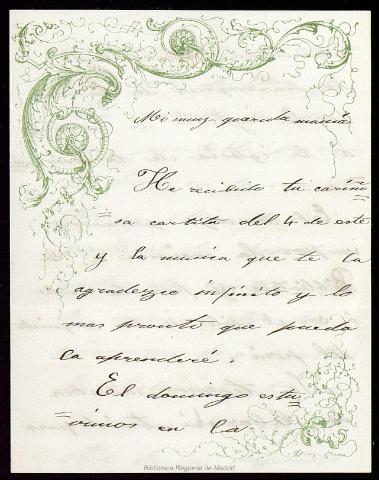 Mi muy querida mamá
He recibido tu cariño
sa cartita del 4 de este
y la musica que te la
agradezco infinito y lo
mas pronto que pueda
la aprenderé.
El domingo estu
vimos en la
Biblioteca Regional de Madrid